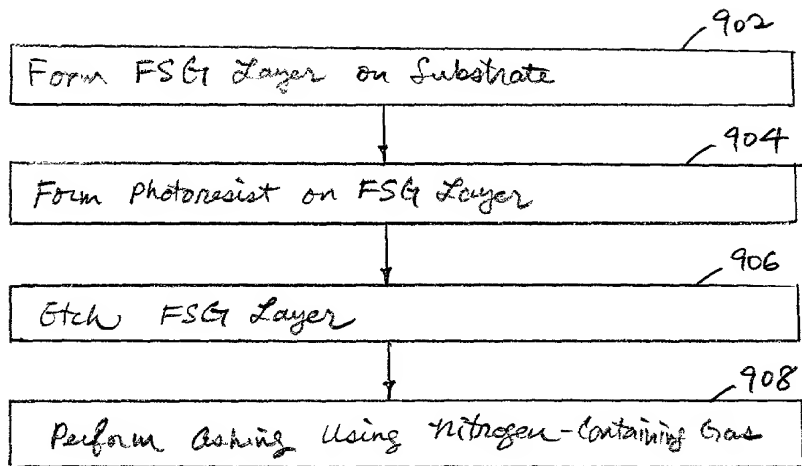 902
Form FSG Layer on Substrate
904
Form Photoresist on FSG Layer
906
Etch FSG Layer
908
Perform Ashing Using Nitrogen-Containing Gas